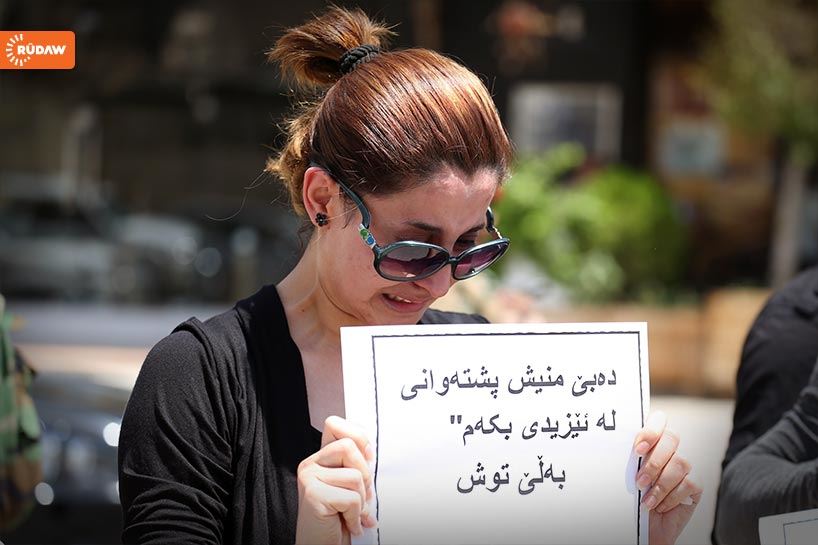 RÛDAW
دەبێ منیش پشتەوانی
لە ئێزیدی بکەم"
بەڵێ توش